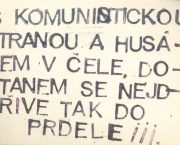 S KOMUNISTICKOU
STRANOU A HUSÁ-
EM V ČELE, DO-
STANEM SE NEJD-
ŘIVE TAK DO
PRDELE !!!